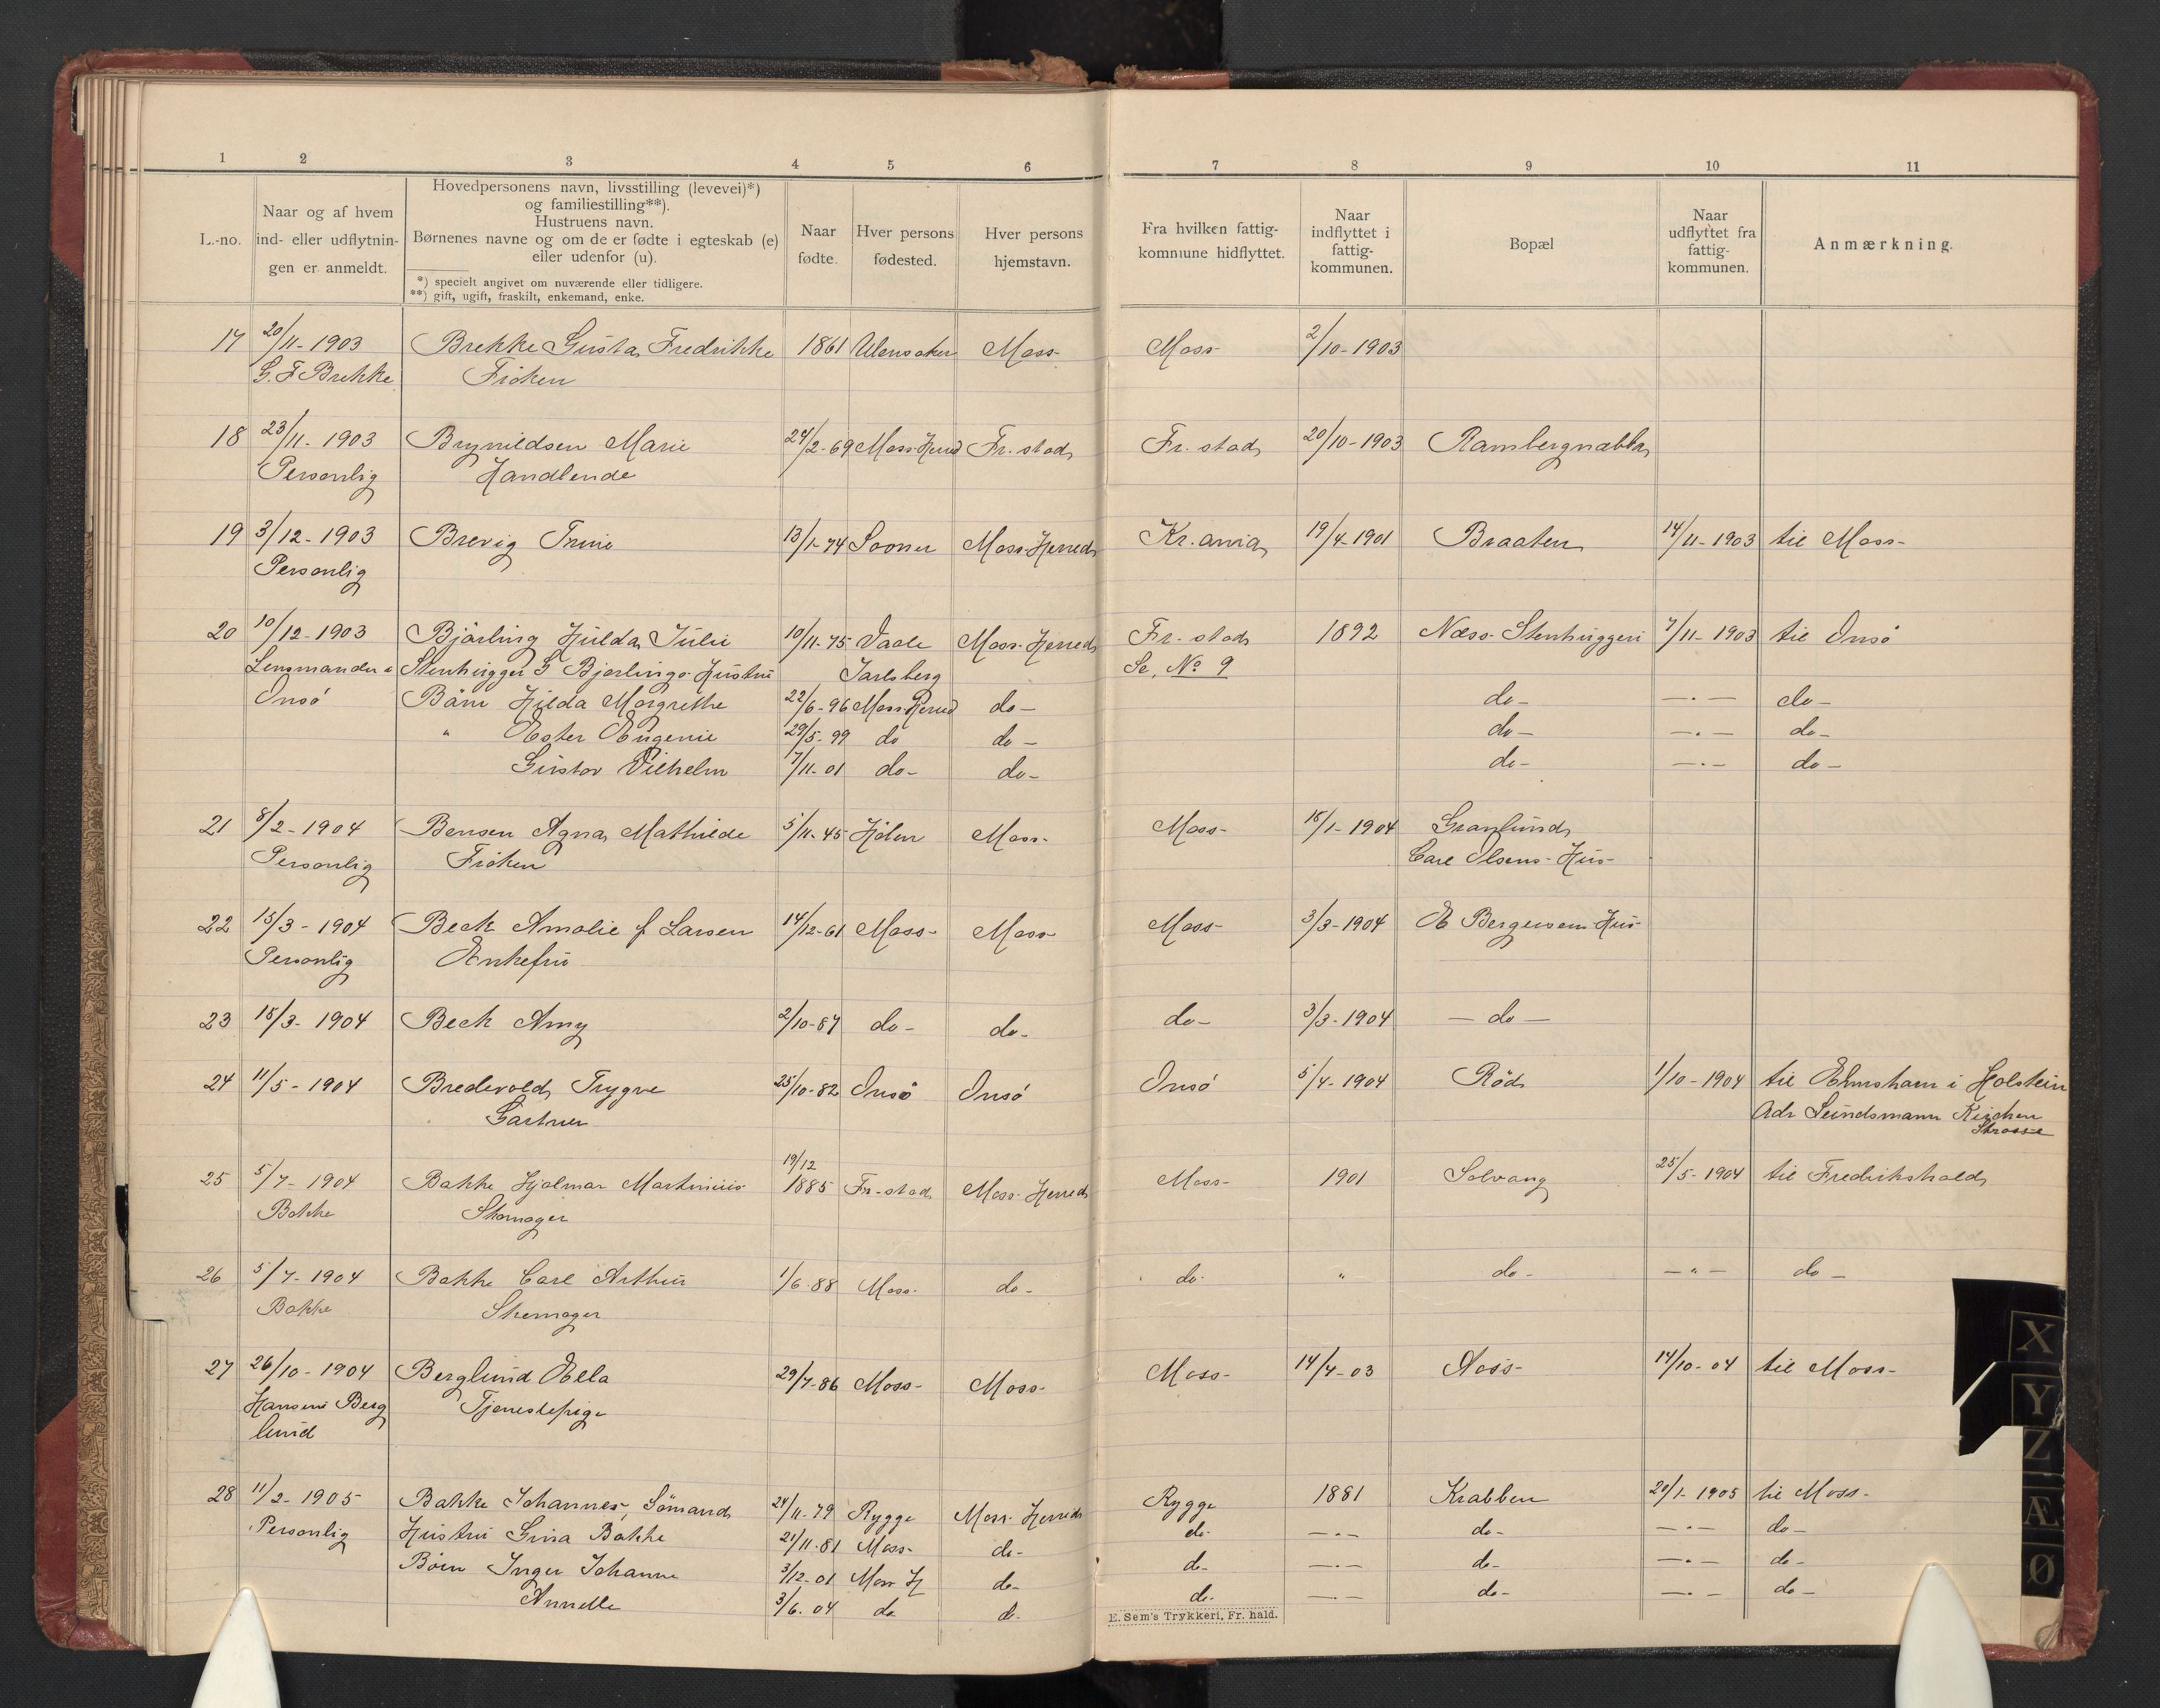 1 2 3 4 5 6 7 8 9 10 11
L.-no.
Naar og af hvem
ind- eller udflytnin-
gen er anmeldt.
Hovedpersonens navn, livsstilling (levevei)*)
og familiestilling**).
Hustruens navn.
Børnenes navne og om de er fødte i egteskab (e)
eller udenfor (u).
*) specielt angivet om nuværende eller tidligere.
**) gift, ugift, fraskilt, enkemand, enke.
Naar
fødte.
Hver persons
fødested.
Hver persons
hjemstavn.
Fra hvilken fattig-
komnune hidflyttet.
Naar
indflyttet i
fattig-
kommunen.
Bopæl
Naar
udflyttet fra
fattig-
kommunen.
Anmærkning.
17 20/11-1903 Brekke Gusta Fredrikke 1861 Ulensaker Moss- Moss- 2/10-1903
G. F Brekke Frøken
18 23/11-1903 Brynildsen Marie 24/2-69 Moss Herred Fr. stad Fr. stad 20/10-1903 Rambergnabben
Personlig Handlende
19 3/12-1903 Brevig Trine 13/1-74 Sooner Moss Herred Kr. ania 19/4-1901 Braaten 14/11-1903 til Moss-
Personlig
20 10/12-1903 Bjärling Hilda Julie 10/11-75 Vaale Moss-Herred Fr. stad 1892 Næss Stenhuggeri 7/11-1903 til Onsö
Lensmanden i Stenhugger G Bjerlings Hustru Jarlsberg Se, No 9
Onsö Barn Hilda Margrethe 22/6-96 Moss Herred do- do- —.— do-
" Ester Eugenie 29/5-99 do do- do- —.— do-
Gustav Vilhelm 7/11-01 do- do- do- —.— do-
21 8/2-1904 Bensen Agna Mathilde 5/11-45 Hölen Moss- Moss- 15/1-1904 Granlund
Personlig Frøken Carl Olsens-Hus-
22 15/3-1904 Beck Amalie f Larsen 14/12-61 Moss- Moss- Moss- 3/3-1904 E Bergersens Hus
Personlig Enkefru
23 15/3-1904 Beck Amy 2/10-87 do- do- do- 3/3-1904 — do —
24 11/5-1904 Bredevold Trygve 25/10-82 Onsö Onsö Onsö 5/4-1904 Röd 1/10-1904 til Elmsharn i Holstein
Gartner Adr Sundsmann Kirchen
Strasse
19/12
25 5/7-1904 Bakke Hjalmar Martinius 1885 Fr-stad Moss-Herred Moss- 1901 Solvang 25/5-1904 til Fredrikshald
Bakke Skomager
26 5/7-1904 Bakke Carl Arthur 1/6-88 Moss- do- do- " do- —"— do-
Bakke Skomager
27 26/10-1904 Berglund Ella 29/7-86 Moss- Moss- Moss- 14/4-03 Aas- 14/10-04 til Moss-
Hansine Berg Tjenestepige
lund
28 11/2-1905 Bakke Johannes, Sömand 24/11-79 Rygge Moss-Herred Rygge 1881 Krabben 20/1-1905 til Moss-
Personlig Hustru Gina Bakke 21/11-81 Moss- do- do- —.— do- —.— do-
Börn Inger Johanne 3/12-01 Moss H do- do- —.— do- —.— do-
Annelle 3/6-04 do do- do- —.— do- —.— do-
E. Sem's Trykkeri, Fr. hald.
X
Y
Z
Æ
Ø